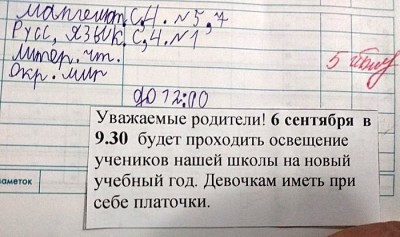 математ. с,4. №5, 7
Русс, язык. с,4. №1
Литер. чт.
Окр. мир
до 12:00
Уважаемые родители! 6 сентября в
9.30 будет проходить освещение
учеников нашей школы на новый
учебный год. Девочкам иметь при
себе платочки.
заметок